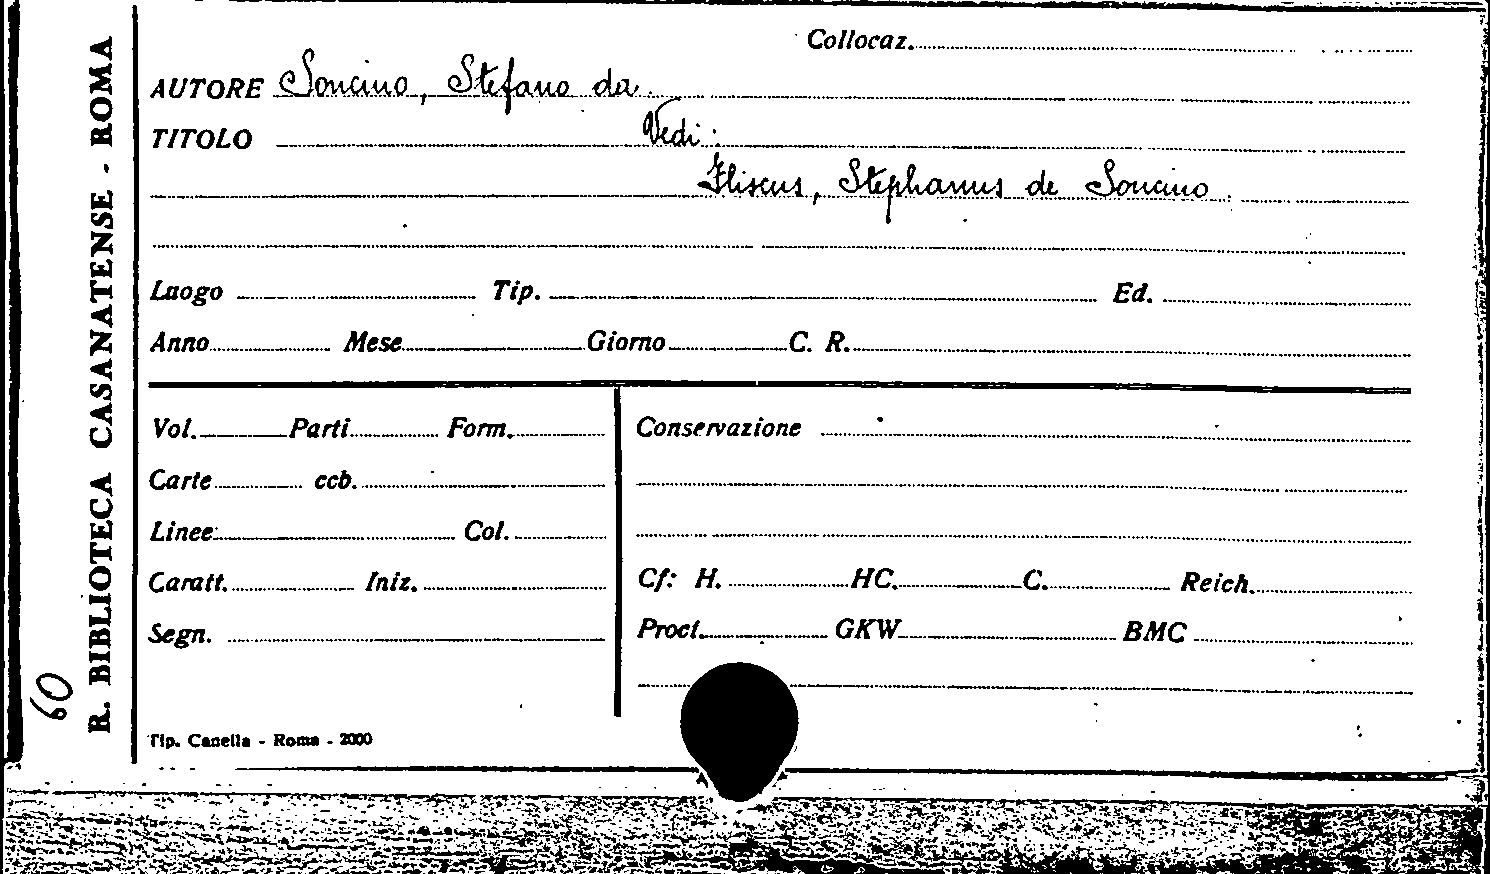 Collocaz.
AUTORE Soncino, Stefano da.
TITOLO Vedi:
Fliscus, Stephanus de Soncino.
Luogo Tip. Ed.
Anno Mese Giorno C. R.
Vol. Parti Form.
Carte ccb.
Linee Col.
Caratt. Iniz.
Segn.
Conservazione
Cf: H. HC. C. Reich.
Proct. GKW BMC
Tip. Canella - Roma - 2000
R. BIBLIOTECA CASANATENSE - ROMA
60